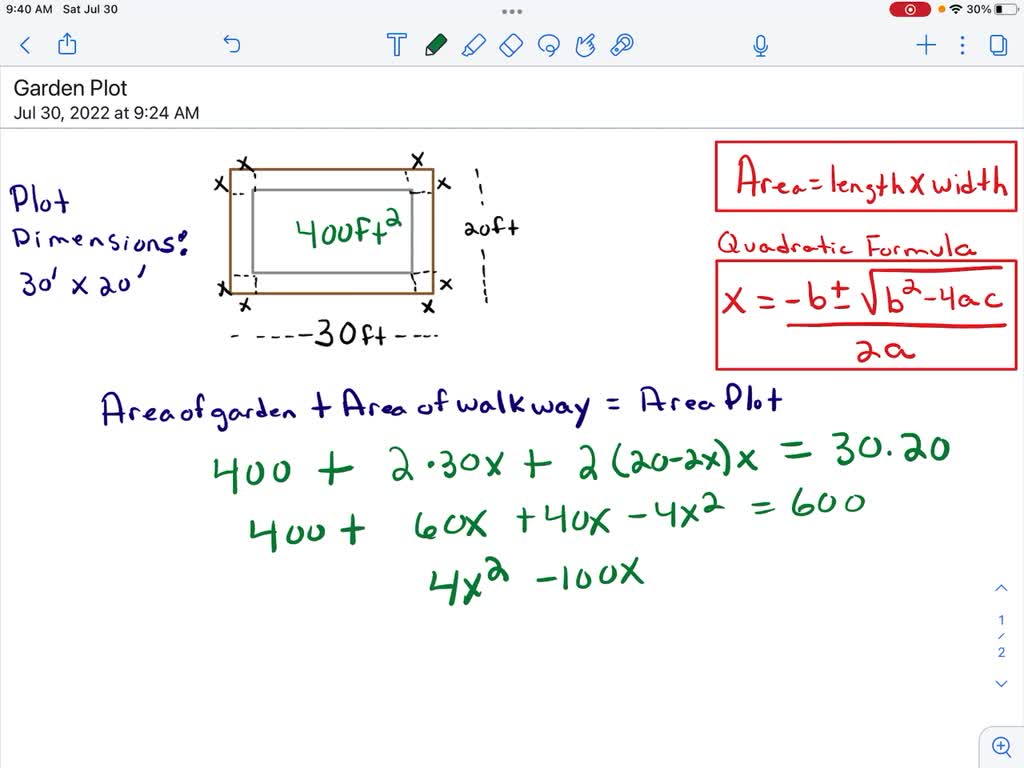 9:40 AM Sat Jul 30
30%
T
Garden Plot
Jul 30, 2022 at 9:24 AM
x x
x x
Plot
Dimensions:
30' x 20'
400ft²
20ft
x x
x x
30ft
Area = length x width
Quadratic Formula
x = -b ± √b²-4ac
2a
Area of garden + Area of walkway = Area Plot
400 + 2·30x + 2(20-2x)x = 30.20
400 + 60x + 40x - 4x² = 600
4x² - 100x
1
/
2